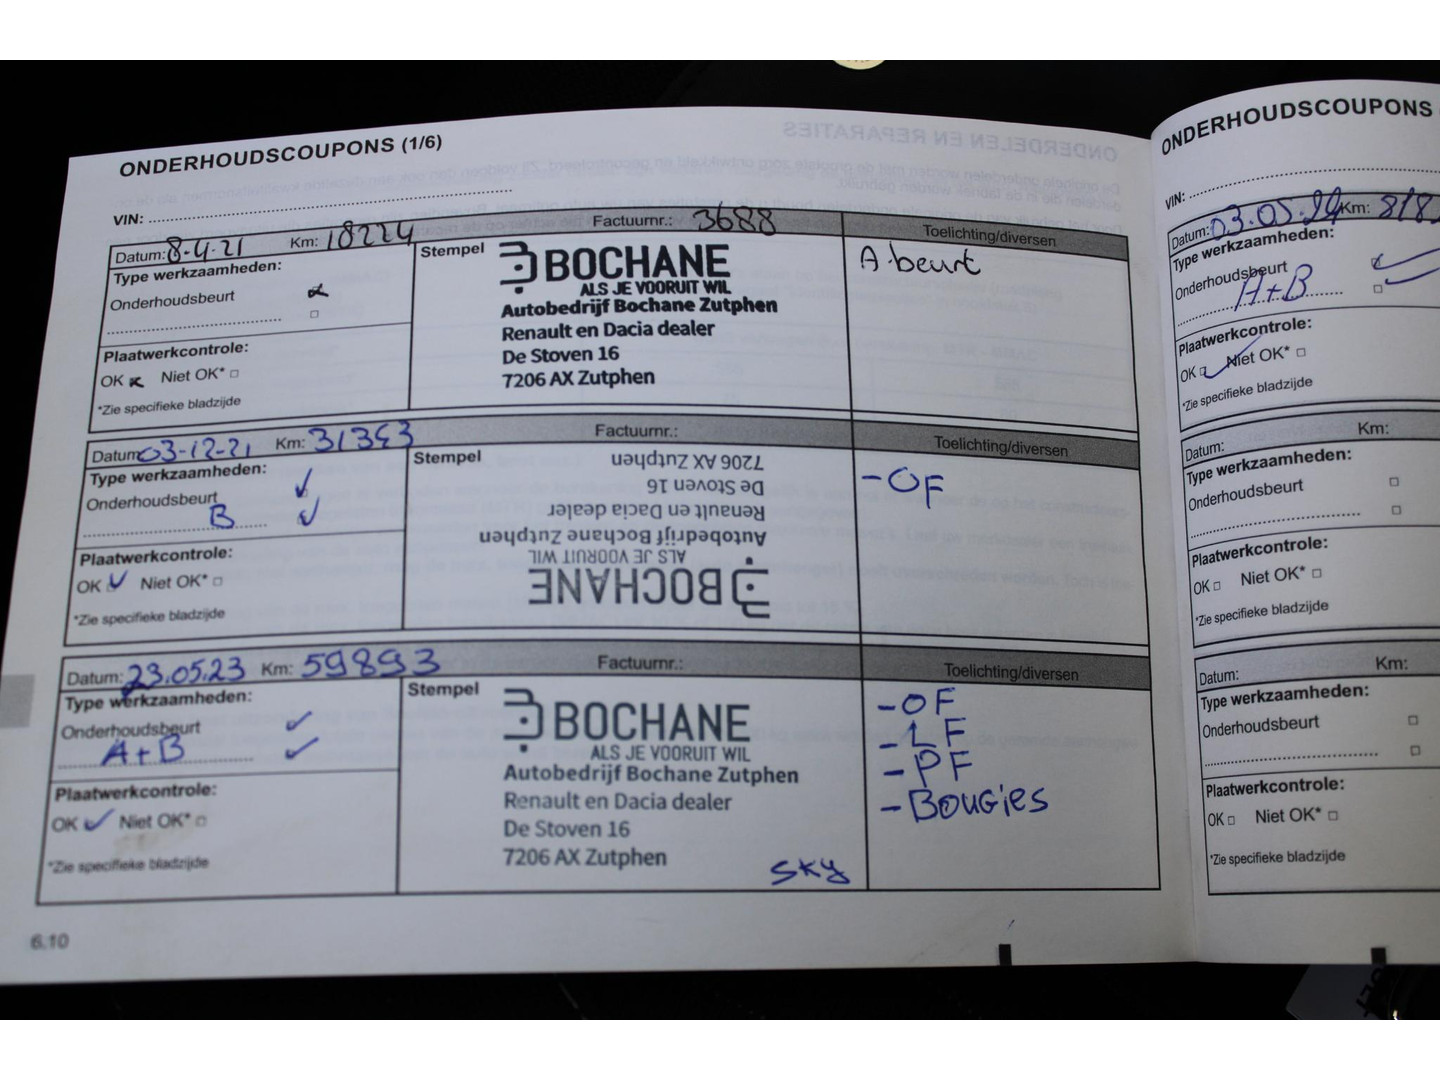 ONDERHOUDSCOUPONS (1/6)
VIN:
Datum: 8-4-21 Km: 18224 Factuurnr.: 3688 Toelichting/diversen
Type werkzaamheden:
Onderhoudsbeurt
Plaatwerkcontrole:
OK Niet OK*
*Zie specifieke bladzijde
Stempel
BOCHANE
ALS JE VOORUIT WIL
Autobedrijf Bochane Zutphen
Renault en Dacia dealer
De Stoven 16
7206 AX Zutphen
A beurt
Datum: 03-12-21 Km: 31353 Factuurnr.: Toelichting/diversen
Type werkzaamheden:
Onderhoudsbeurt
B
Plaatwerkcontrole:
OK Niet OK*
*Zie specifieke bladzijde
Stempel
BOCHANE
ALS JE VOORUIT WIL
Autobedrijf Bochane Zutphen
Renault en Dacia dealer
De Stoven 16
7206 AX Zutphen
- OF
Datum: 23.05.23 Km: 59893 Factuurnr.: Toelichting/diversen
Type werkzaamheden:
Onderhoudsbeurt
A+B
Plaatwerkcontrole:
OK Niet OK*
*Zie specifieke bladzijde
Stempel
BOCHANE
ALS JE VOORUIT WIL
Autobedrijf Bochane Zutphen
Renault en Dacia dealer
De Stoven 16
7206 AX Zutphen
sky
- OF
- LF
- PF
- Bougies
6.10
ONDERHOUDSCOUPONS
VIN:
Datum: 03.05.24 Km: 818
Type werkzaamheden:
Onderhoudsbeurt
A+B
Plaatwerkcontrole:
OK Niet OK*
*Zie specifieke bladzijde
Datum: Km:
Type werkzaamheden:
Onderhoudsbeurt
Plaatwerkcontrole:
OK Niet OK*
*Zie specifieke bladzijde
Datum: Km:
Type werkzaamheden:
Onderhoudsbeurt
Plaatwerkcontrole:
OK Niet OK*
*Zie specifieke bladzijde